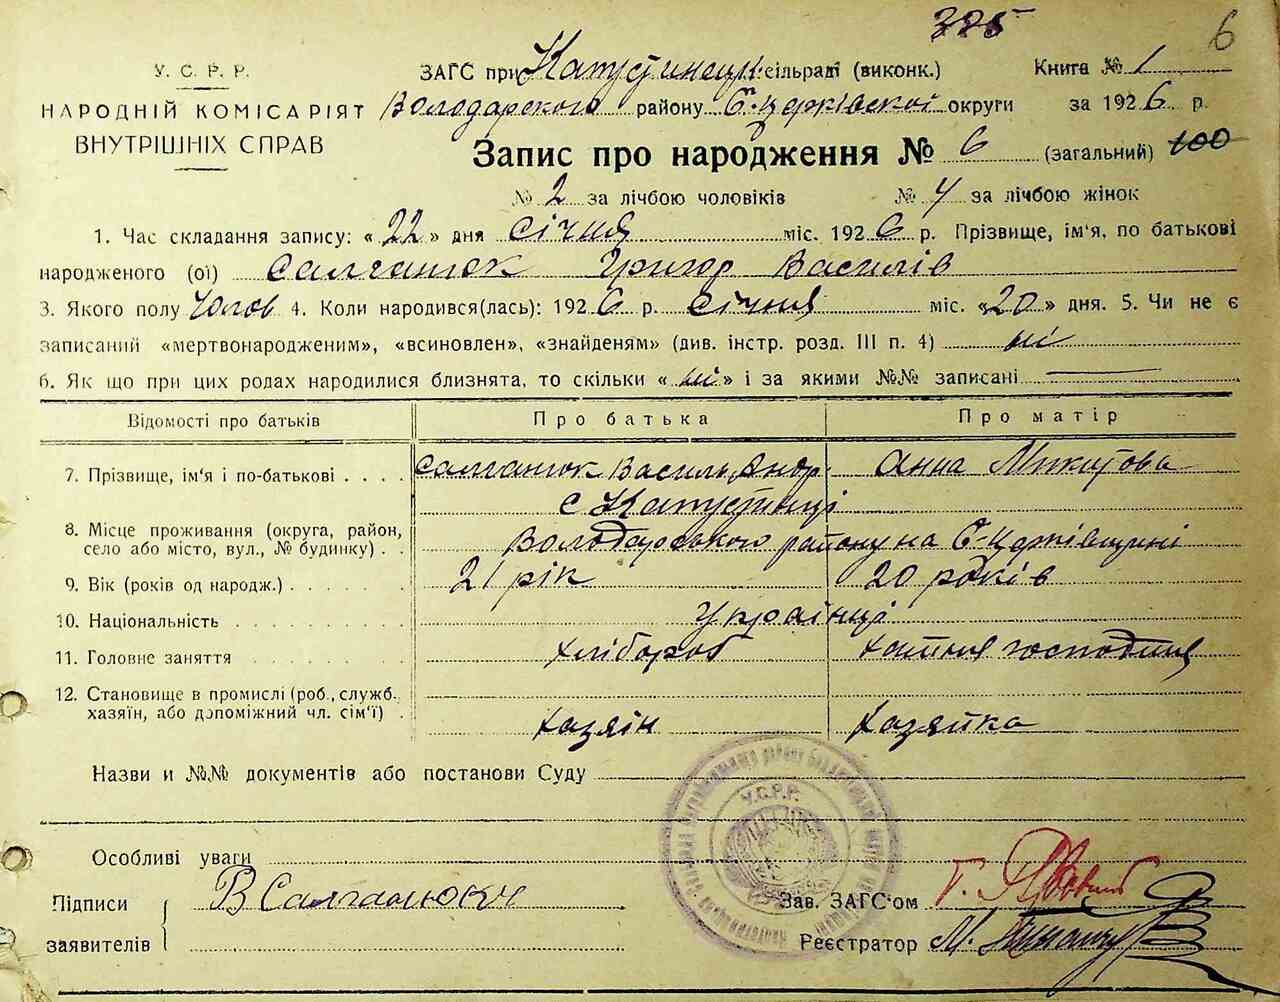 325
6
У. С. Р. Р.
НАРОДНІЙ КОМІСАРІЯТ
ВНУТРІШНІХ СПРАВ
ЗАГС при Капустинецк. сільраді (виконк.)
Книга № 1
Володарского району Б.-Церківской округи за 1926 р.
Запис про народження № 6 (загальний) 100
№ 2 за лічбою чоловіків № 4 за лічбою жінок
1. Час складання запису: «22» дня січня міс. 1926 р. Прізвище, ім'я, по батькові
народженого (ої) Салганюк Григор Василів
3. Якого полу Чолов 4. Коли народився(лась): 1926 р. січня міс. «20» дня. 5. Чи не є
записаний «мертвонародженим», «всиновлен», «знайденям» (див. інстр. розд. III п. 4) ні
6. Як що при цих родах народилися близнята, то скільки «ні» і за якими №№ записані
Відомості про батьків Про батька Про матір
7. Прізвище, ім'я і по-батькові . . . . Салганюк Василь Андр. Анна Микитова
с Капустинці
8. Місце проживання (округа, район,
село або місто, вул., № будинку) . . Володарського району на Б-Церківщині
9. Вік (років од народж.) . . . . . . . 21 рік 20 років
10. Національність . . . . . . . . . . Українці
11. Головне заняття . . . . . . . . . хлібороб хатня господиня
12. Становище в промислі (роб., служб.,
хазяїн, або допоміжний чл. сім'ї) . хазяін хазяйка
Назви и №№ документів або постанови Суду
У.С.Р.Р.
Особліві уваги
Підписи
заявителів
В Салганюк
Зав. ЗАГС'ом
Реєстратор М.